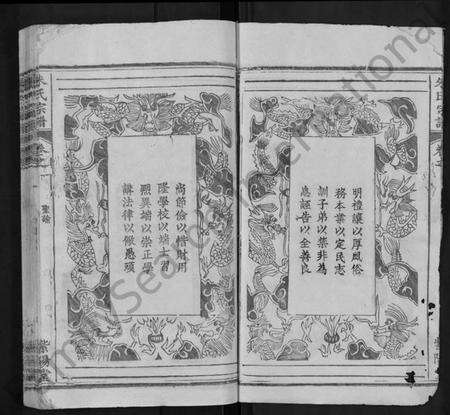 明禮讓以厚風俗
務本業以定民志
訓子弟以禁非為
息誣告以全善良
尚節儉以惜財用
隆學校以端士習
黜異端以崇正學
講法律以儆愚頑
聖諭